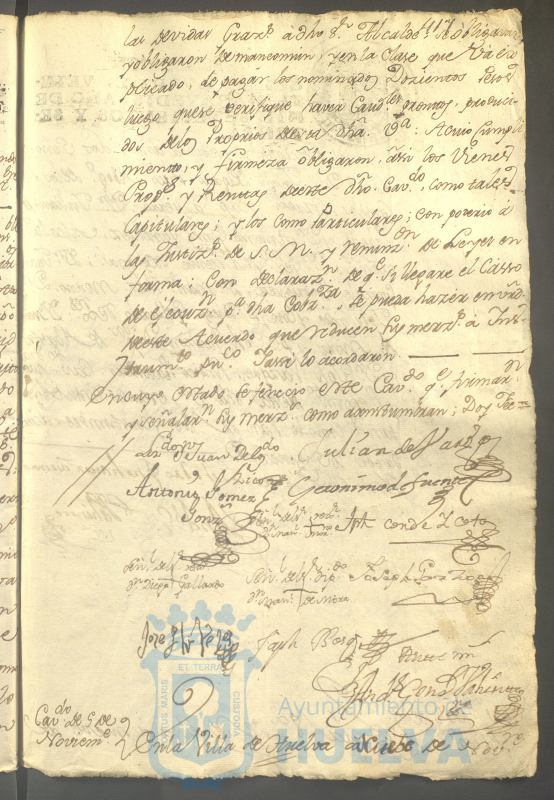 las devidas Graz.s a dho S.r Alcalde
y obligaron de mancomun, y en la Clase que va ex
plicado, de pagar los nominados Dozientos pesos
luego que se verifique haver Caud.les promptos, produci
dos de los Propios de esta dha V.a: A cuio cumpli
miento, y firmeza obligaron, assi los Vienes
Prop.s y Rentas de este dho. Cav.do, como tales
Capitulares; y los como Particulares; con poderio a
las Justiz.s de S. M. y renunz.on de Leyes en
forma; Con declaraz.n de q.e si llegare el Casso
de execuz.n p.a dha Cobr.za, se pueda hazer en vrd
de este Acuerdo que reducen sus merz.s a Ins
trum.to pu.co Y assi lo acordaron.
En cuyo estado, se fenecio este Cav.do q.e firmar.n
y señalar.n sus merz.s como acostumbran; Doy Fee=
Juan Delg.do
Julian de
Antonio Gomez
Geronimo de fuentes
Conde
Señ.l de
Diego Gallardo
Señ.l de
de Mora
Joseph
Joze
Joseph
Cav.do de 5 de
Noviem.e
En la Villa de Huelva a cinco de Nov.e
ET TERRA
PORTUS MARIS
CUSTODIA
Ayuntamiento de
HUELVA